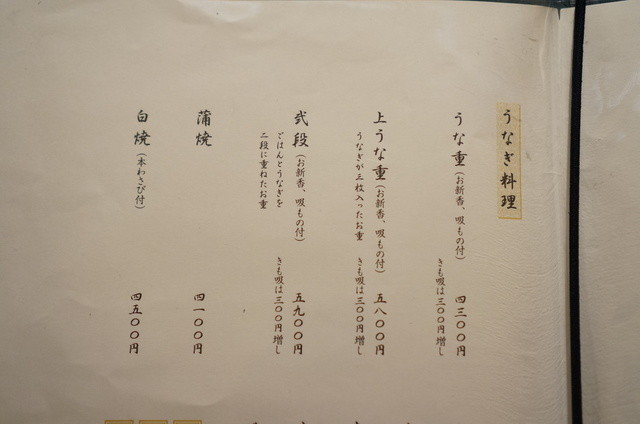 うなぎ料理
うな重(お新香、吸もの付) 四三〇〇円
きも吸は三〇〇円増し
上うな重(お新香、吸もの付) 五八〇〇円
うなぎが三枚入ったお重 きも吸は三〇〇円増し
弐段(お新香、吸もの付) 五九〇〇円
ごはんとうなぎを きも吸は三〇〇円増し
二段に重ねたお重
蒲焼 四一〇〇円
白焼(本わさび付) 四五〇〇円